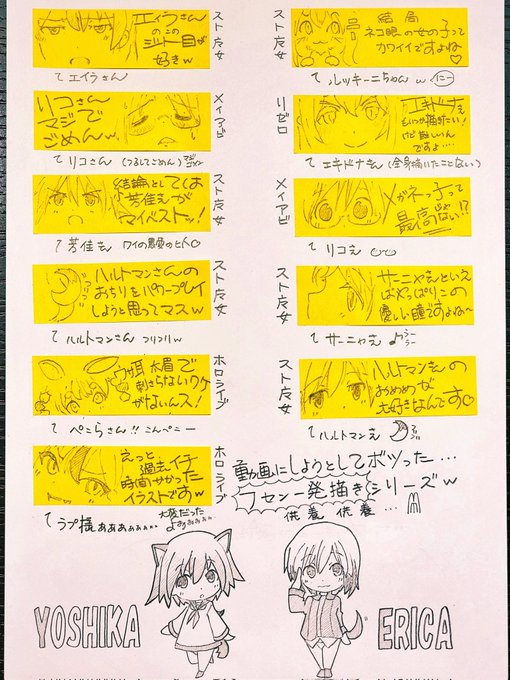 エイラさん
のこの
ジト目が
好きw
スト魔女
↑エイラさん
リコさん
マジで
ごめんw
メイアビ
↑リコさん(つるしてごめん)
結論としては
芳佳ぇが
マイベストッ!
スト魔女
↑芳佳ぇ ワイの最愛のヒト♡
ハルトマンさんの
おちりをパワープレイ
しようと思ってマスw
スト魔女
↑ハルトマンさん ツリツリw
ウサ耳太眉で
刺さらないワケ
がないんス!
ホロライブ
↑ぺこらさん!! こんぺこー
えっと
過去イチ
時間かかった
イラストですw
ホロライブ
↑ラプ様ぁぁぁぁぁ…
大変だった
よぉぉぉぉ…
結局
ネコ眼の女の子って
カワイイですよね
♡
スト魔女
↑ルッキーニちゃんw
エキドナぇ
もいつか描きたい!
けど難しいん
ですよ…
リゼロ
↑エキドナさん(全身描いたことない)
メガネっ子って
最高じゃない!?
メイアビ
↑リコぇ
サーニャさんといえ
ばやっぱりこの
優しい瞳ですよね〜
スト魔女
↑サーニャぇ♪
ハルトマンさんの
おめめが
大好きなんです♡
スト魔女
↑ハルトマンぇ
動画にしようとしてボツった…
フセン一発描きシリーズw
供養 供養…
YOSHIKA
ERICA